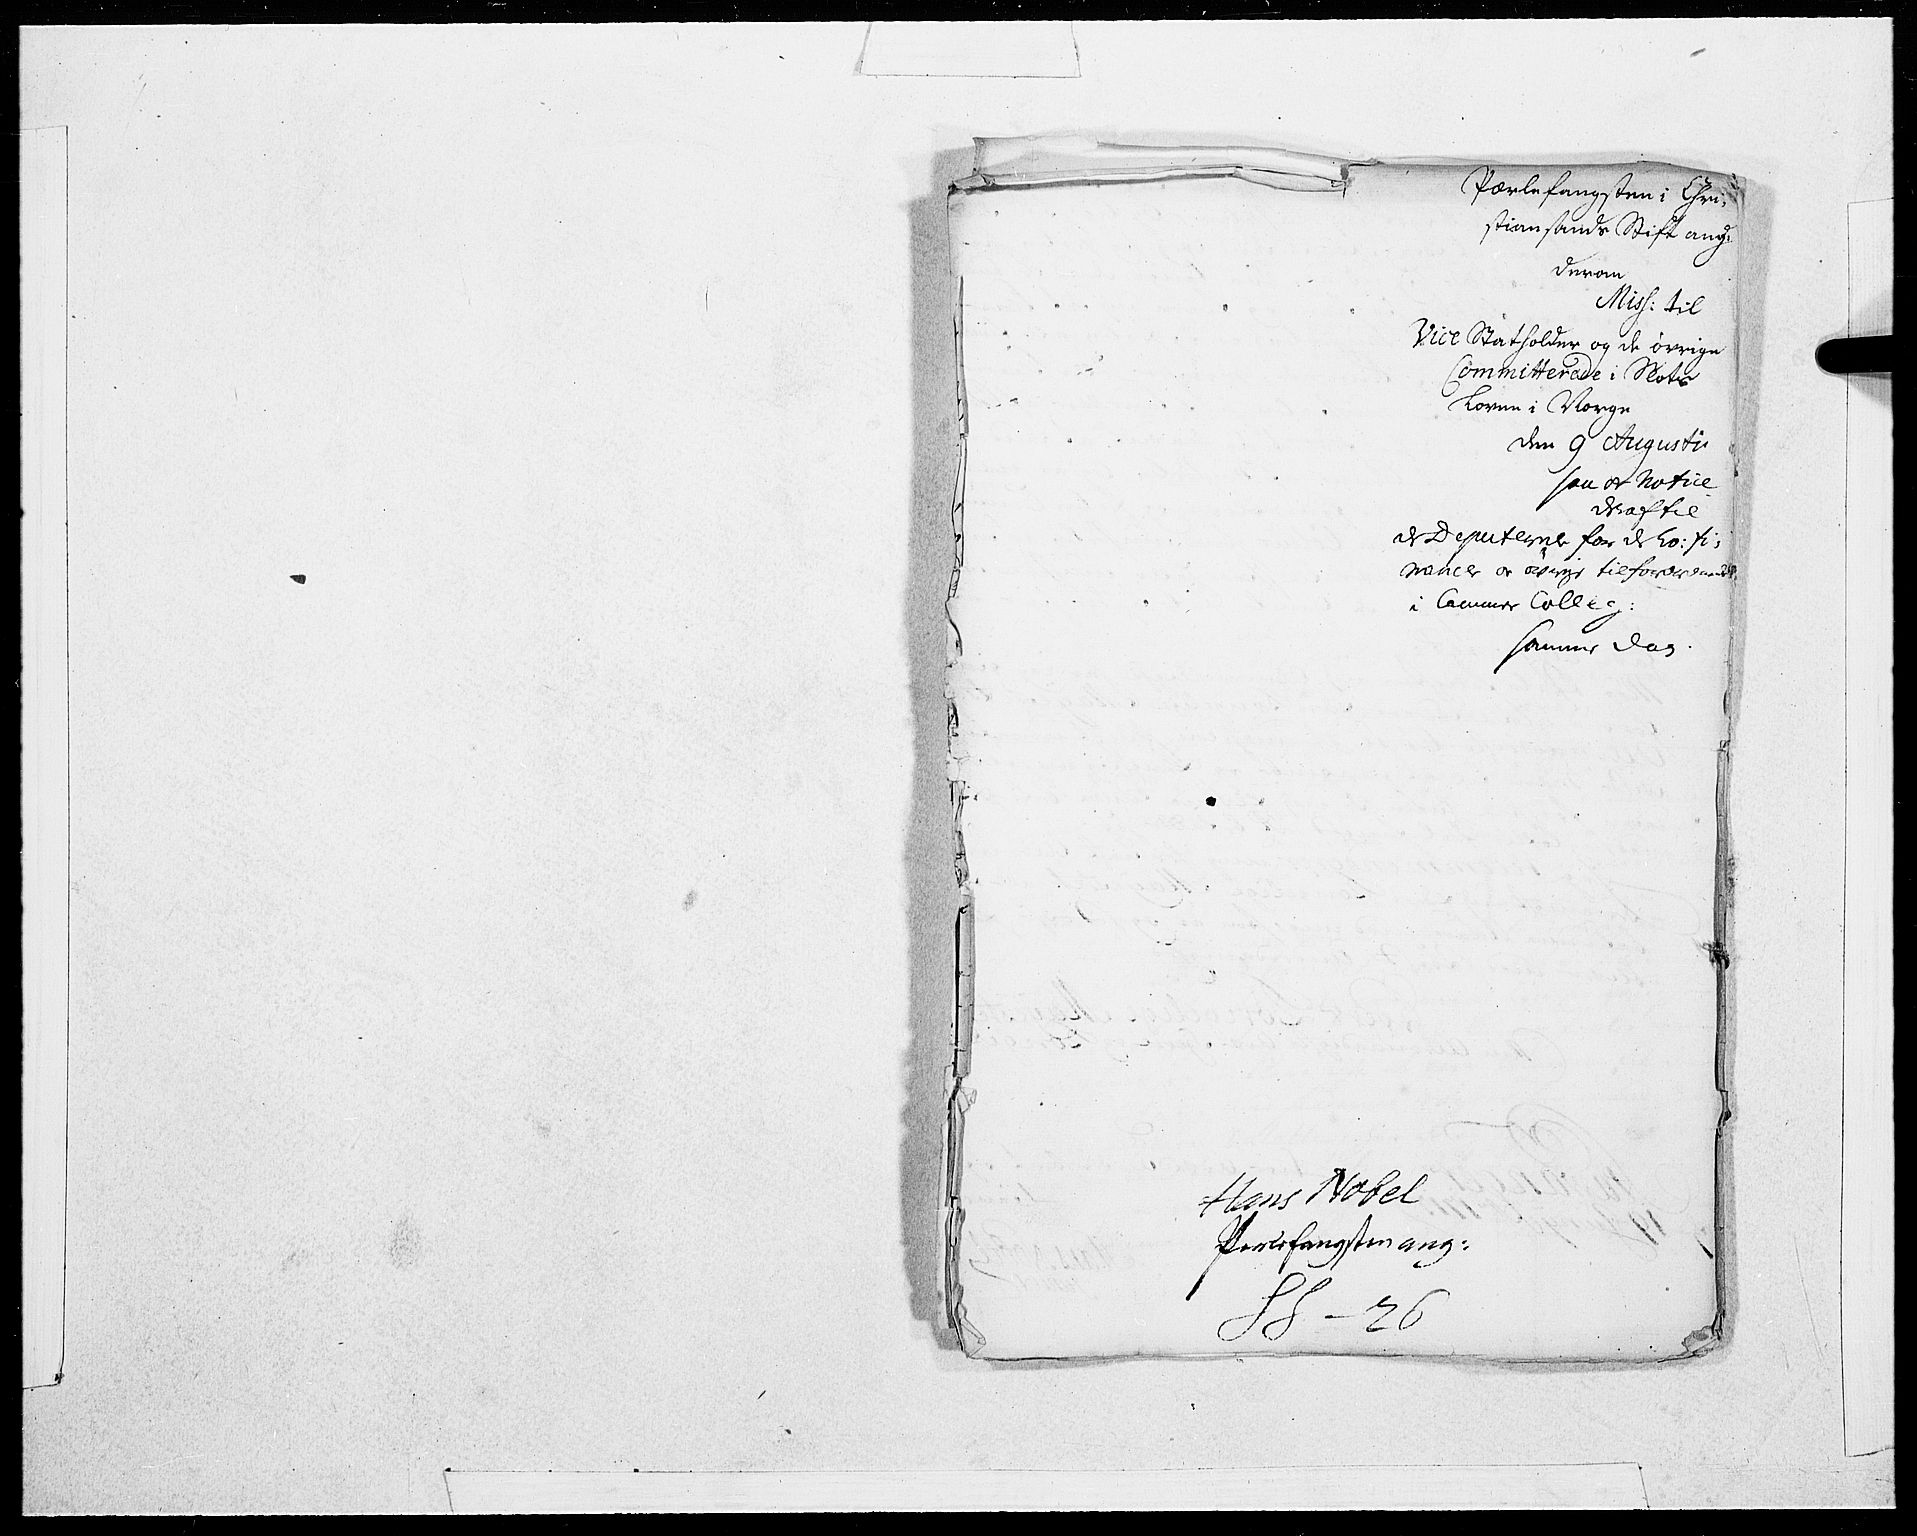 Pærlefangsten i Chri-
stiansands Stift ang:
derom
Miss: til
Vice Statholder og de øvrige
Committerede i Slots
Loven i Norge
den 9 Augusti
saa og Notice
deraf til
de Deputerede for de Co: fi-
nancer og øvrige tilforordnede
i Cammer Colleg:
samme dag.
Hans Nobel
Perlefangsten ang:
SS - 26